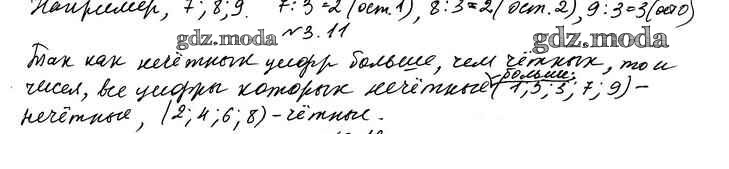 Например, 7; 8; 9. 7:3=2 (ост.1), 8:3=2 (ост.2), 9:3=3 (ост0)
gdz.moda
№3.11
gdz.moda
Так как нечётных цифр больше, чем чётных, то и
больше:
чисел, все цифры которых нечётные (1; 5; 3; 7; 9) –
нечётные, (2; 4; 6; 8) – чётные.